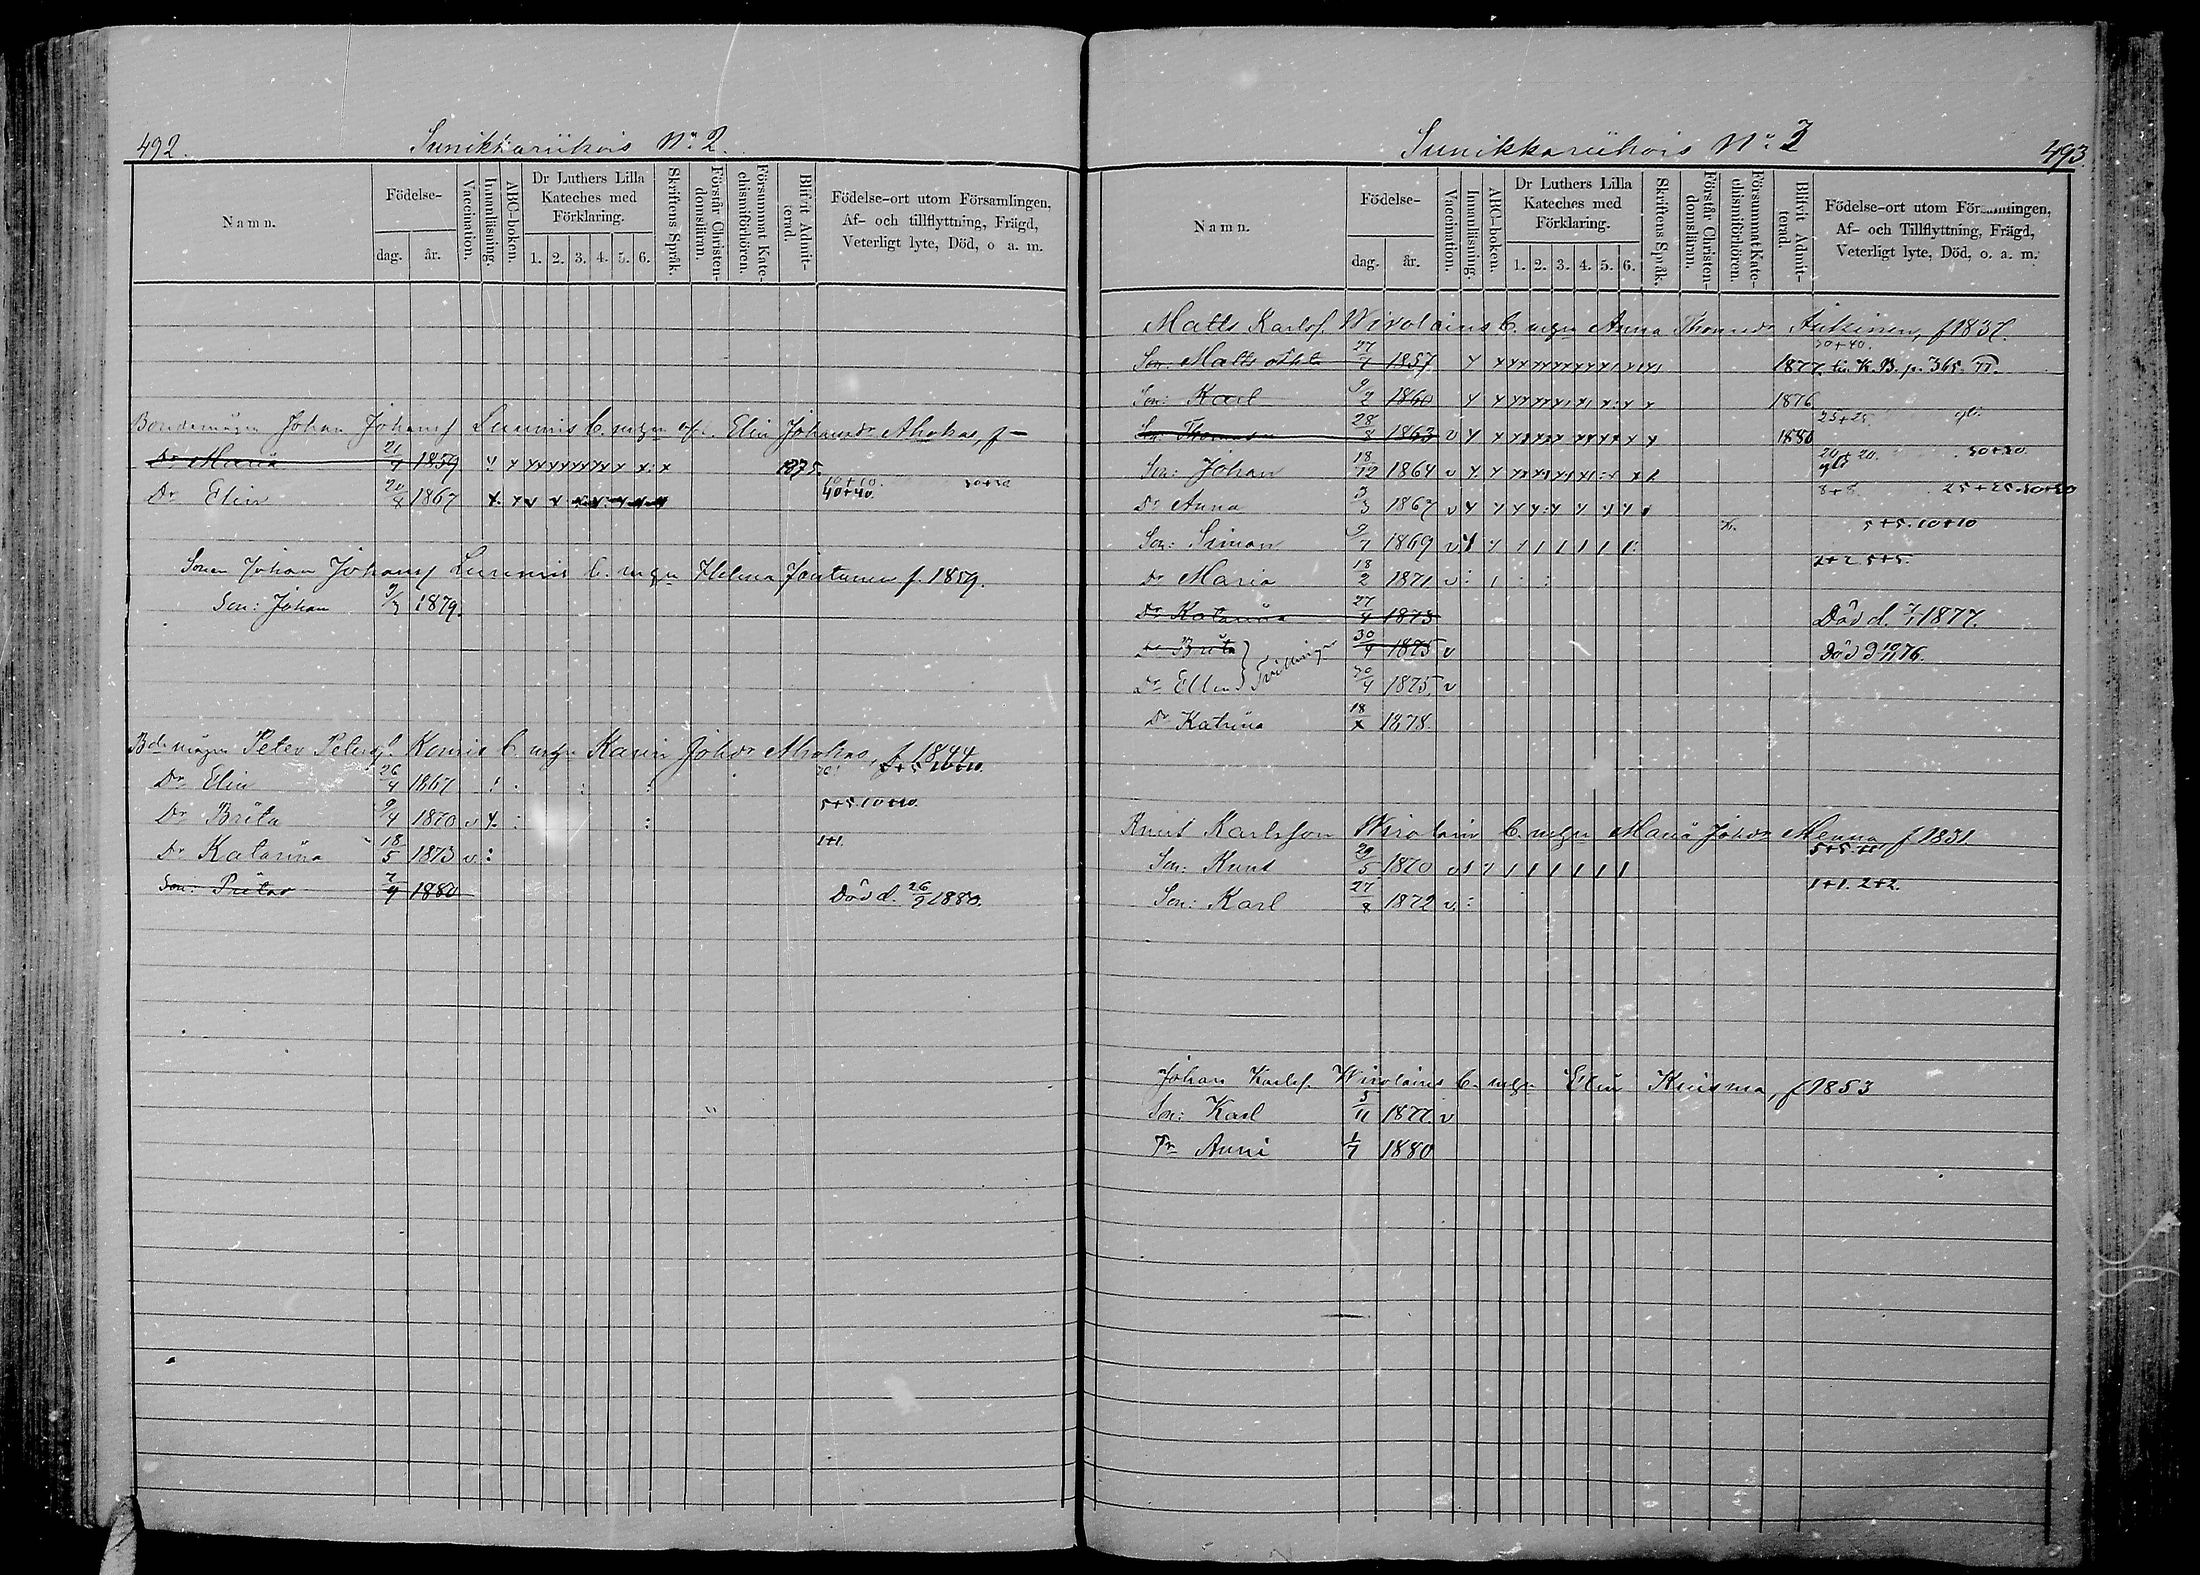 492.
Sunikkariihois No 2.
Namn.
Födelse-
dag.
år.
Vaccination.
Innanläsning.
ABC-boken.
Dr Luthers Lilla
Kateches med
Förklaring.
1. 2. 3. 4. 5. 6.
Skriftens Språk.
Förstår Christen-
domsläran.
Försummat Kate-
chismiförhören.
Blifvit Admit-
terad.
Födelse-ort utom Församlingen,
Af- och tillflyttning, Frägd,
Veterligt lyte, Död, o a. m.
Johan Johansf Lummis C. mgn Elin Johansdr Ahokas, f —
Dr Maria 21/1 1859 1875.
Dr Elin 20/8 1867 10+10. 40+40.
Sonen Johan Johansf Lummis C. mgn Helena Jantunen f. 1859.
Son: Johan 1879.
Peter Kennis C. mgn Karin Johdr Ahokas, f. 1844
Dr Elin 26/4 1867
Dr Brita 9/4 1870 v 5+5. 10+10.
Dr Katarina 18/5 1873 v 1+1.
Son: Petter 7/9 1880 Död d. 26/9 1880.
Sunikkariihois No 3
493.
Namn.
Födelse-
dag.
år.
Vaccination.
Innanläsning.
ABC-boken.
Dr Luthers Lilla
Kateches med
Förklaring.
1. 2. 3. 4. 5. 6.
Skriftens Språk.
Förstår Christen-
domsläran.
Försummat Kate-
chismiförhören.
Blifvit Admit-
terad.
Födelse-ort utom Församlingen,
Af- och Tillflyttning, Frägd,
Veterligt lyte, Död, o. a. m.
Matts Karlsf. Wirolains C. mgn Anna Thomasdr f 1837.
Son: Matts 27/7 1857 1877. K. B. p. 365.
Son: Karl 9/2 1860 1876
Son: Thomas 28/8 1863 v 1880 25+25.
Son: Johan 18/12 1864 v 20+20.
Dr Anna 3/3 1867 v 8+8. 25+25.
Son: Simon 9/7 1869 v 5+5. 10+10
Dr Maria 18/2 1871 v 2+2. 5+5.
Dr Katarina 27/4 1873 Död d. 7/1 1877.
Dr Brita } Tvillingar 30/4 1875 v Död d 76.
Dr Ellen } 30/4 1875. v
Dr Katrina 18/x 1878.
Knut Karlsson Wirolain C. mgn Maria Johdr Menna f 1831.
Son: Knut 29/5 1870 v 5+5.
Son: Karl 27/8 1872 v 1+1. 2+2.
Johan Karlsf. Wirolains C. mgn Elin Kuisma, f 1853
Son: Karl 5/11 1877. v
Dr Anni 1/7 1880